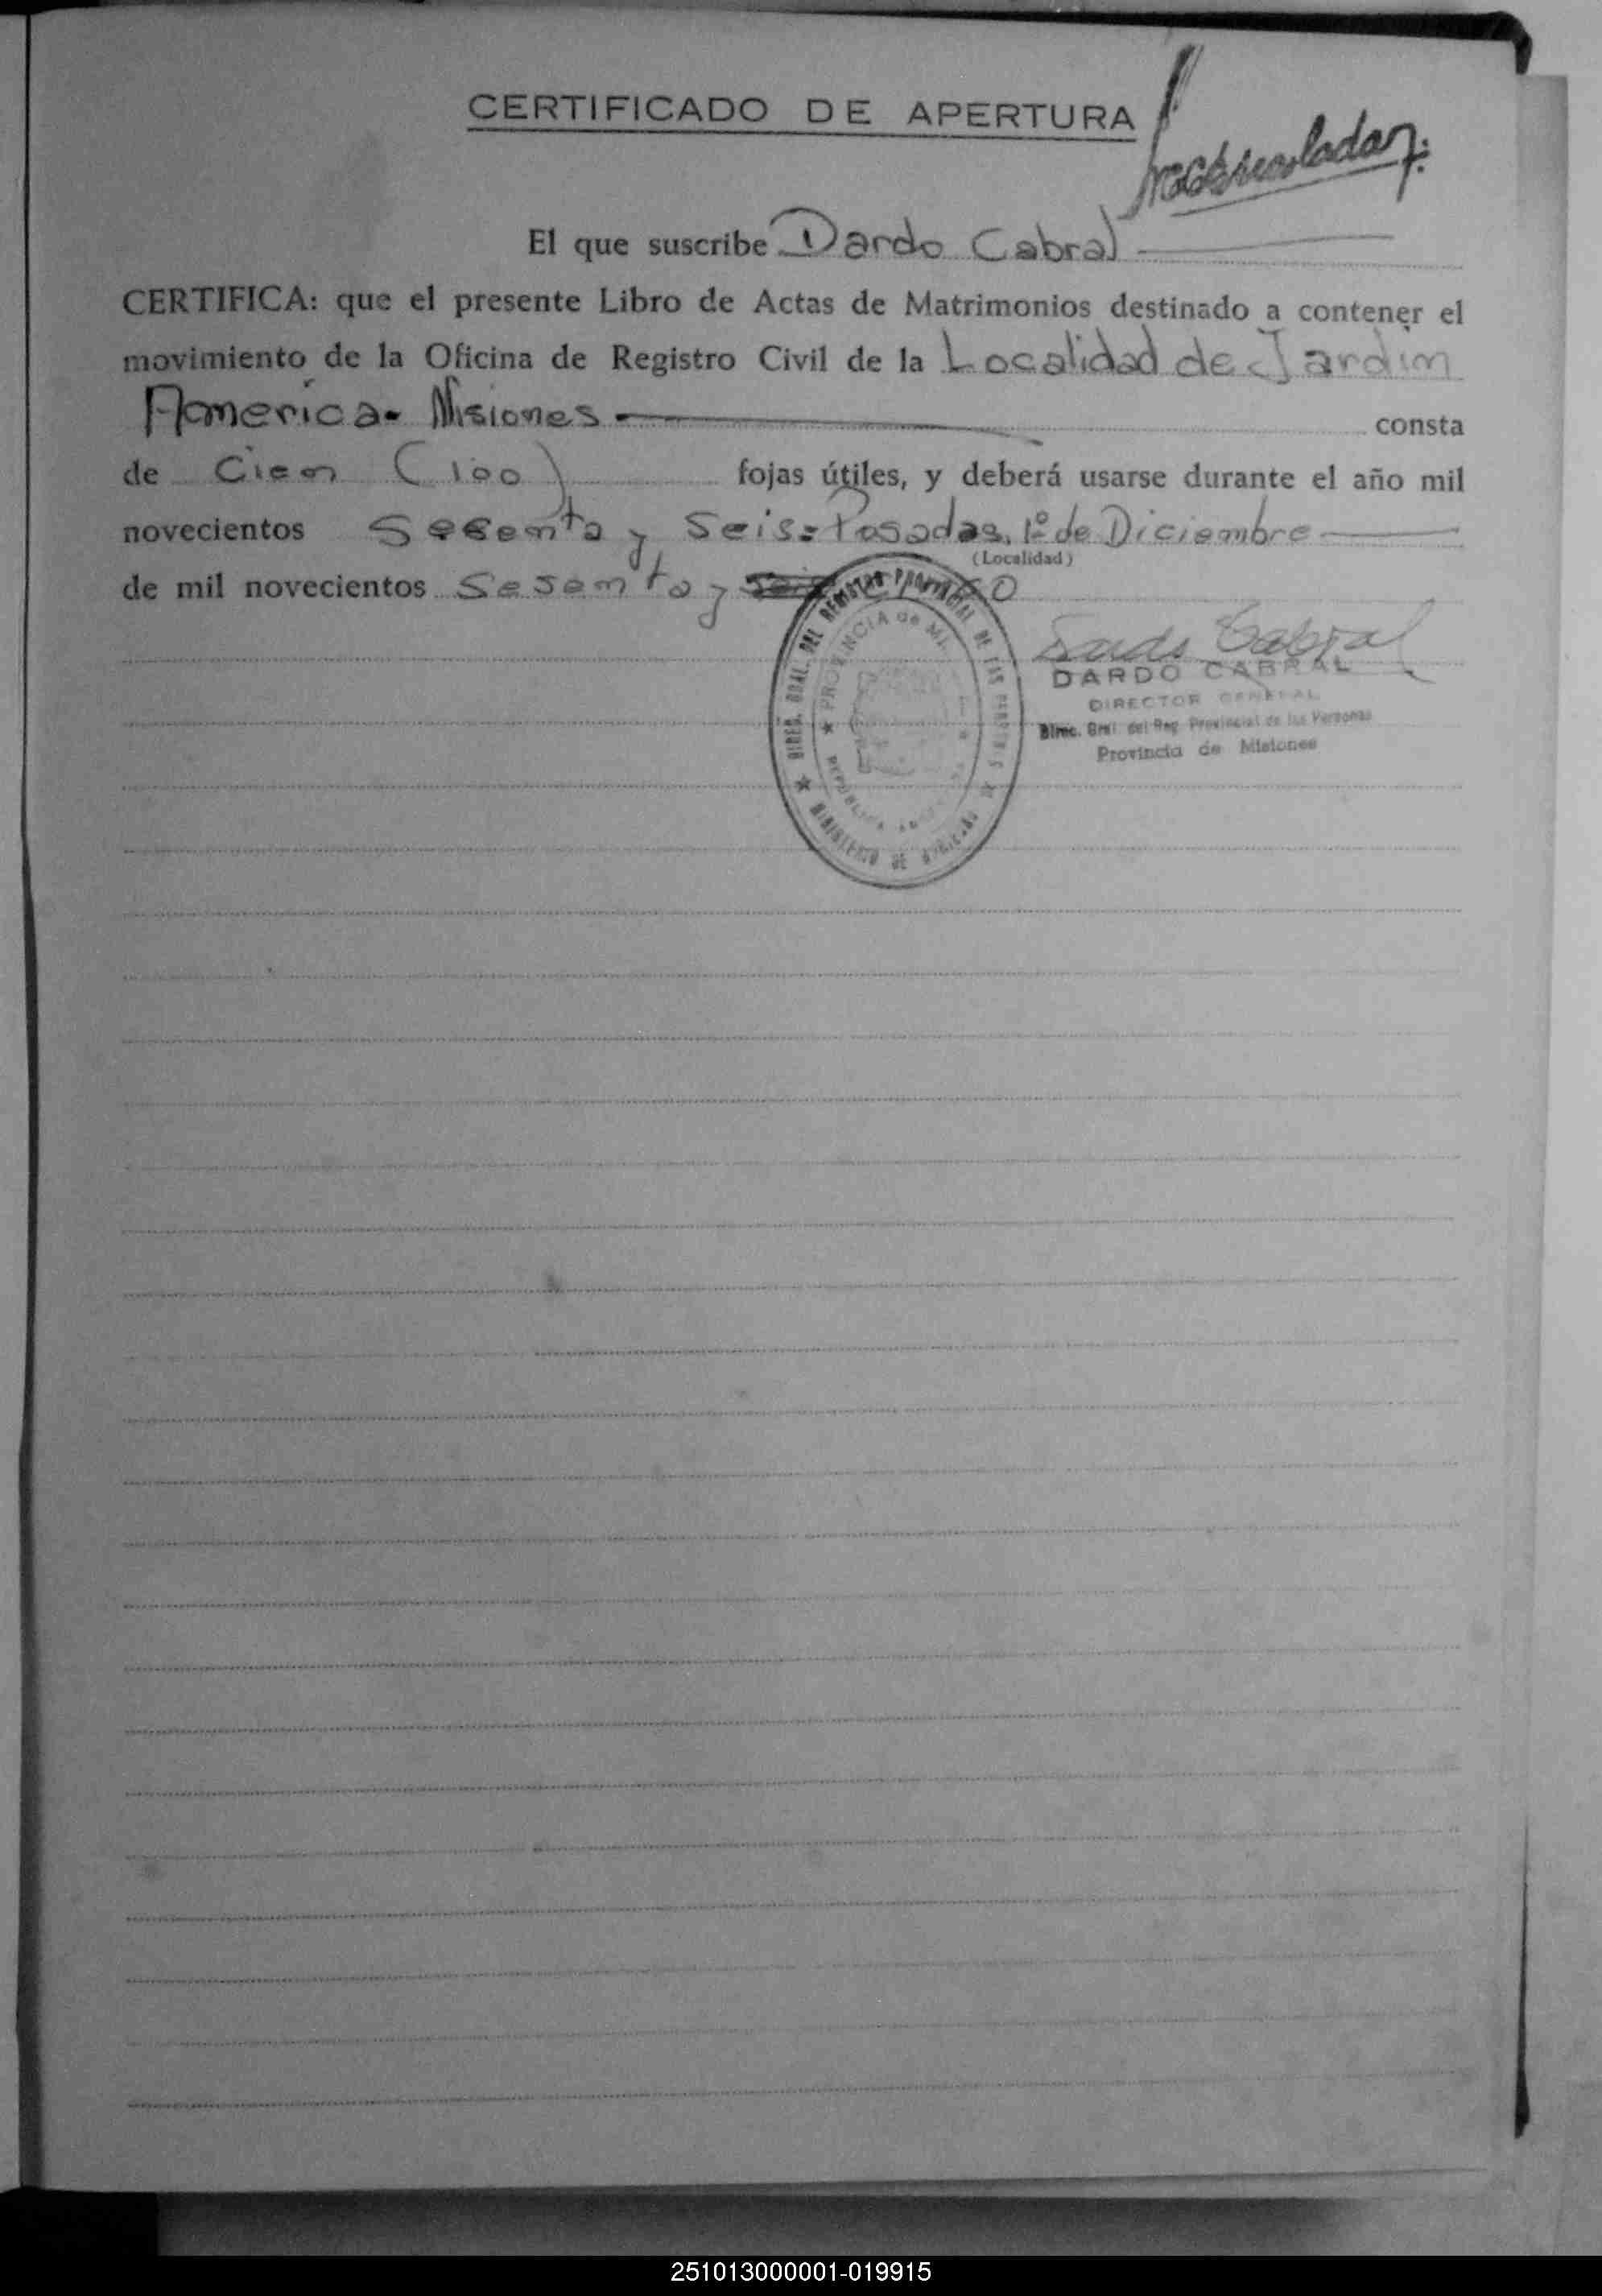 CERTIFICADO DE APERTURA
El que suscribe Dardo Cabral
CERTIFICA: que el presente Libro de Actas de Matrimonios destinado a contener el
movimiento de la Oficina de Registro Civil de la Localidad de Jardin
América - Misiones consta
de Cien (100) fojas útiles, y deberá usarse durante el año mil
novecientos Sesenta y Seis = Posadas, 1º de Diciembre
(Localidad)
de mil novecientos Sesenta y cinco
Dardo Cabral
DARDO CABRAL
DIRECTOR GENERAL
Direc. Gral. del Reg. Provincial de las Personas
Provincia de Misiones
DIREC. GRAL. DEL REGISTRO PROVINCIAL DE LAS PERSONAS
PROVINCIA de
REPUBLICA
MINISTERIO DE
251013000001-019915